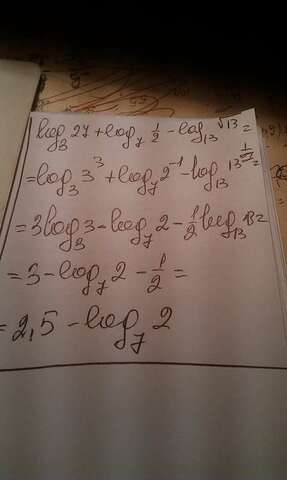 log₃ 27 + log₇ 1/2 - log₁₃ √13 =
= log₃ 3³ + log₇ 2⁻¹ - log₁₃ 13^1/2 =
= 3log₃ 3 - log₇ 2 - 1/2 log₁₃ 13 =
= 3 - log₇ 2 - 1/2 =
= 2,5 - log₇ 2